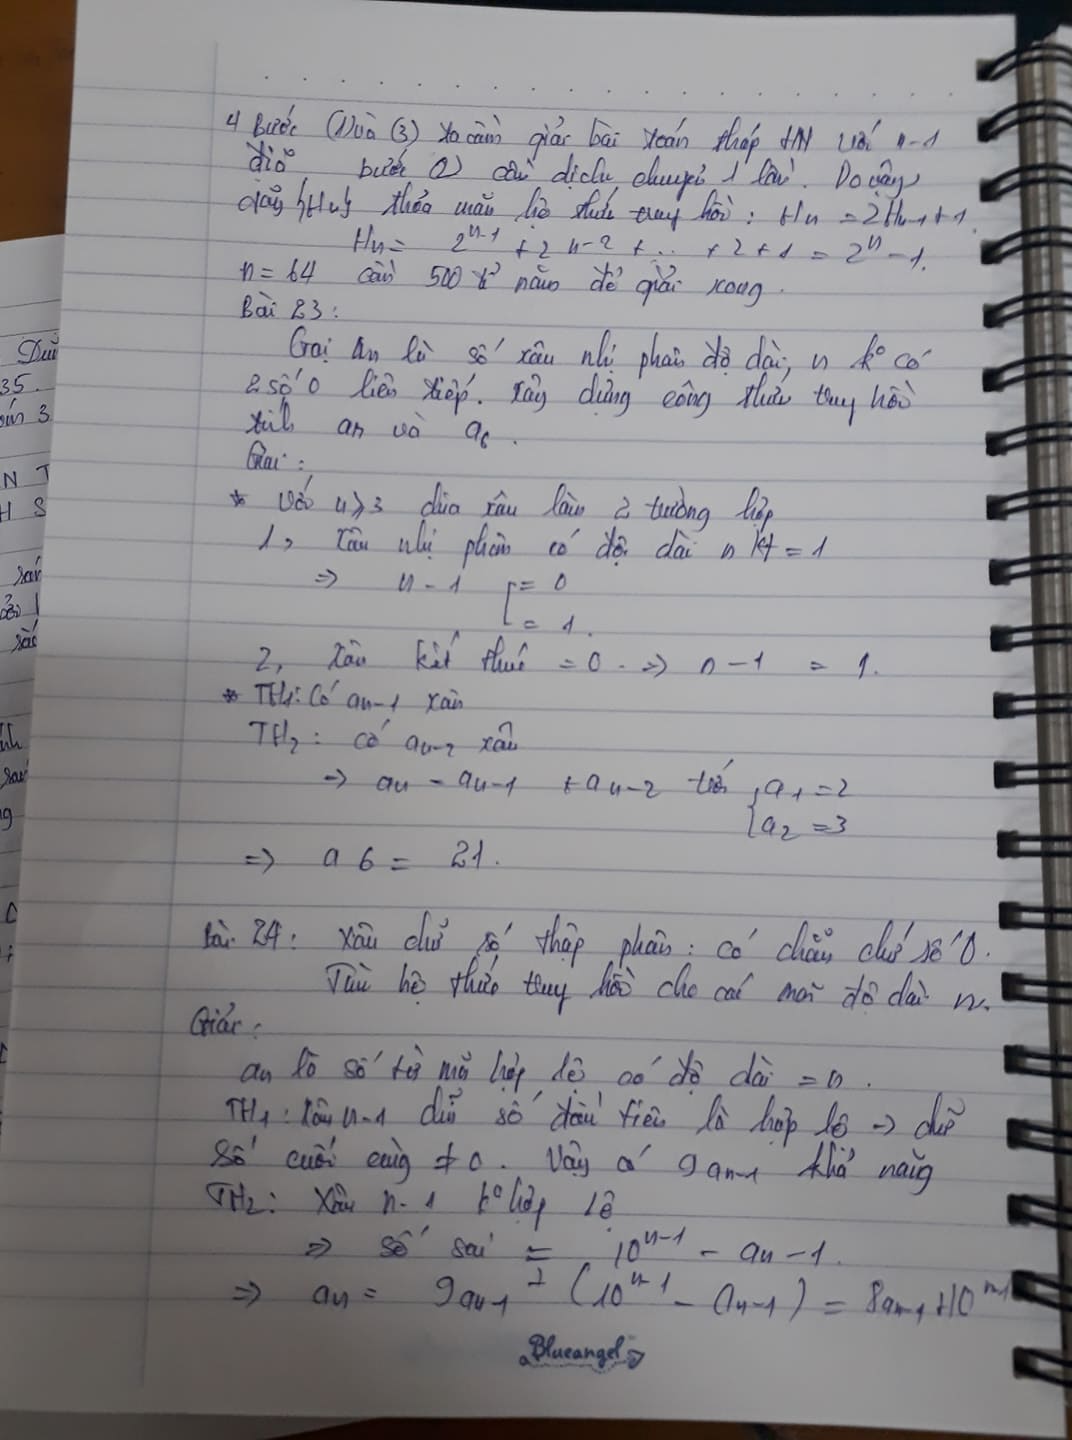 4 Bước (1) và (3) ta cần giải bài toán tháp HN với n-1
đĩa, bước (2) cần dịch chuyển 1 lần. Do vậy
dãy {Hn} thỏa mãn hệ thức truy hồi: Hn = 2Hn-1 + 1.
Hn = 2^n-1 + 2^n-2 + ... + 2 + 1 = 2^n - 1.
n = 64 cần 500 tỉ năm để giải xong.
Bài 23:
Gọi an là số xâu nhị phân độ dài, n k° có
2 số 0 liên tiếp. Xây dựng công thức truy hồi
tính an và a6.
Giải:
* Với n≥3 chia xâu làm 2 trường hợp
1, Xâu nhị phân có độ dài n kt = 1
=> n-1 [= 0
= 1.
2, Xâu kết thúc = 0. => n-1 = 1.
* TH1: Có an-1 xâu
TH2: có an-2 xâu
=> an = an-1 + an-2 với {a1 = 2
{a2 = 3
=> a6 = 21.
Bài 24: Xâu chữ số thập phân: có chẵn chữ số 0.
Tìm hệ thức truy hồi cho các mã độ dài n.
Giải:
an là số từ mã hợp lệ có độ dài = n.
TH1: Xâu n-1 chữ số đầu tiên là hợp lệ -> chữ
số cuối cùng ≠ 0. Vậy có 9an-1 khả năng
TH2: Xâu n-1 k° hợp lệ
=> số sai = 10^n-1 - an-1.
=> an = 9an-1 + (10^n-1 - an-1) = 8an-1 + 10^n-1
Blueangel
Dui
35.
N T
H S